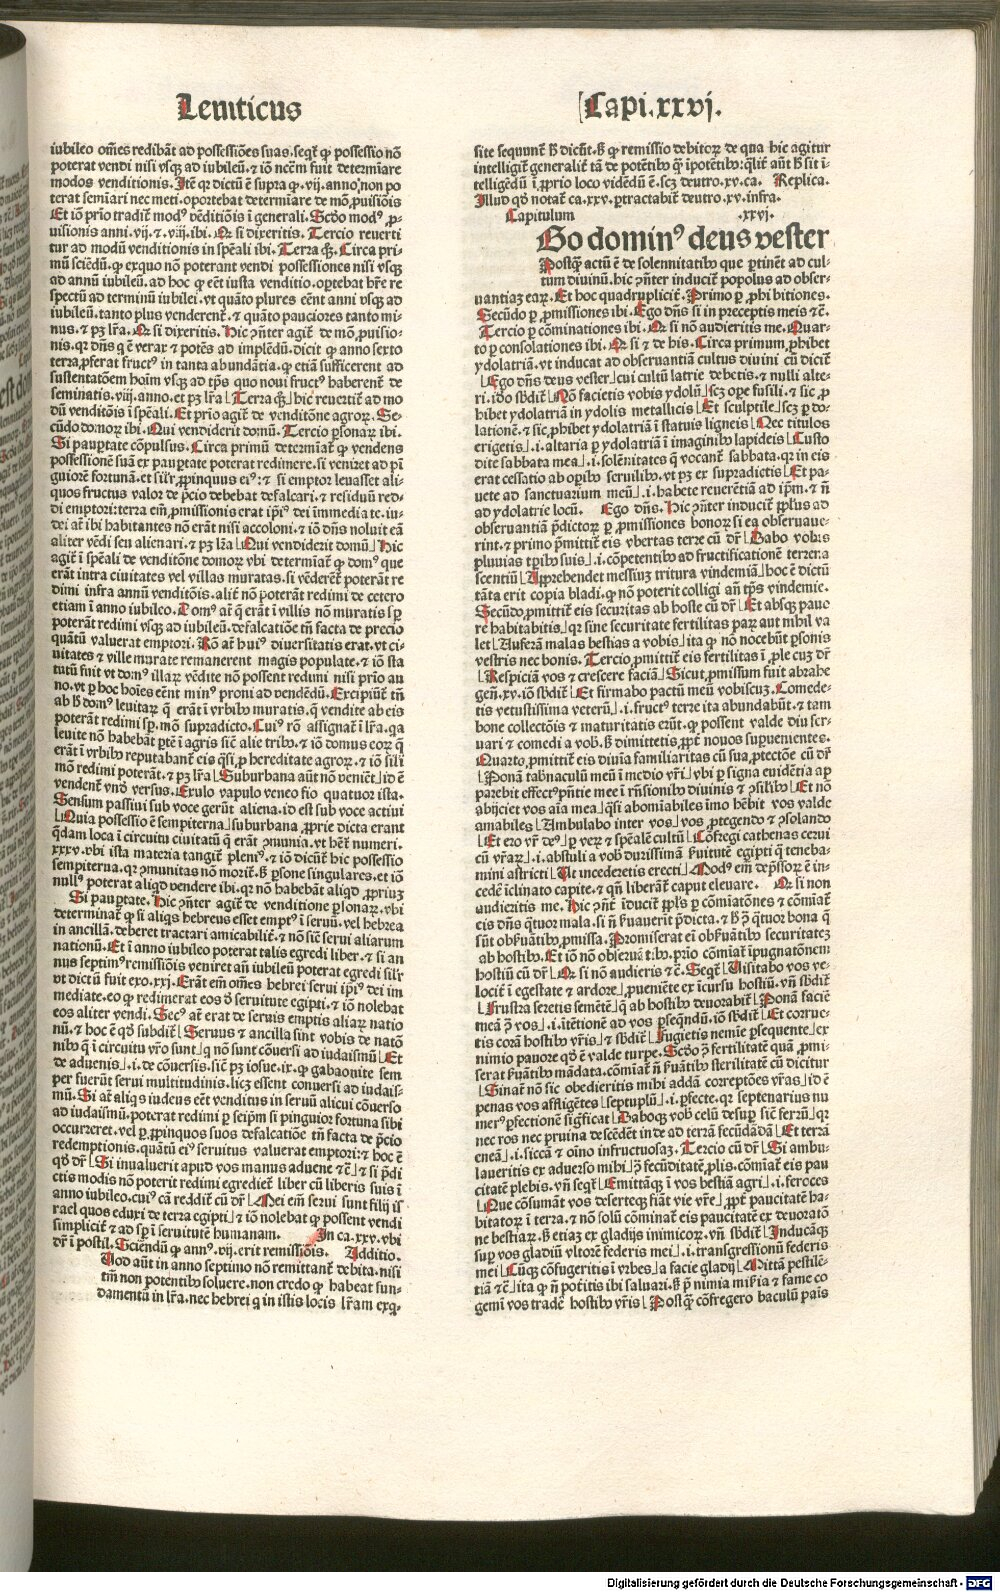 Leuiticus
iubileo om̃es redibãt ad possessiões suas. seqt̃ ꝙ possessio nõ
poterat vendi nisi vsqꝫ ad iubileũ. ⁊ iõ necẽm fuit determiare
modos venditionis. Itẽ qꝛ dictũ ẽ supra ꝙ .vij. anno non po
terat semiari nec meti. oportebat determiare de mõ ꝓuisiõis
Et iõ prio tradit̃ modꝰ vẽditiõis ĩ generali. Scðo modꝰ ꝓ
uisionis anni .vij. ⁊ .viij. ibi. Qꝛ si dixeritis. Tercio reuerti
tur ad modũ venditionis in spẽali ibi. Terra qꝫ. Circa pri
mũ sciẽdũ. ꝙ exquo nõ poterant vendi possessiones nisi vsqꝫ
ad annũ iubileũ. ad hoc ꝙ eẽt iusta venditio. oportebat hr̃e re
spectũ ad terminũ iubilei. vt quãto plures eẽnt anni vsqꝫ ad
iubileũ. tanto plus venderent̃. ⁊ quãto pauciores tanto mi
nus. ⁊ pꝫ lr̃a. Qꝛ si dixeritis. Hic ꝯñter agit̃ de mõ ꝓuisio⸗
nis. qꝛ dñs q̃ ẽ verax ⁊ potẽs ad implẽdũ. dicit ꝙ anno sexto
terra ꝓferat fructꝰ in tanta abundãtia. ꝙ etiã sufficerent ad
sustentatõem hoĩm vsqꝫ ad tp̃s quo noui fructꝰ haberent̃ de
seminatis .viij. anno. et pꝫ lr̃a. Terra qꝫ. hic reuertit̃ ad mo
dũ venditõis ĩ spẽali. Et prio agit̃ de venditõne agroꝝ. Se⸗
cũdo domoꝝ ibi. Qui vendiderit domũ. Tercio ꝑsonaꝝ ibi.
Si paupertate cõpulsus. Circa primũ determiat̃ ꝙ vendens
possessionẽ suã ex paupertate poterat redimere. si veniret ad pĩ
guiorẽ fortunã. et silr̃ ꝓpinquus eiꝰ: ⁊ si emptor leuasset ali⸗
quos fructus valor de p̃cio debebat defalcari. ⁊ residuũ red⸗
di emptori: terra em̃ ꝓmissionis erat ip̃iꝰ dei immediate. iu⸗
dei at̃ ibi habitantes nõ erãt nisi accoloni. ⁊ iõ dñs noluit eã
aliter vẽdi seu alienari. ⁊ pꝫ lr̃a Qui vendiderit domũ Hic
agit̃ ĩ spẽali de venditõne domoꝝ vbi determiat̃ ꝙ domꝰ que
erãt intra ciuitates vel villas muratas. si vẽderẽt̃ poterãt re
dimi infra annũ venditõis. alit̃ nõ poterãt redimi de cetero
etiam ĩ anno iubileo. Domꝰ at̃ q̃ erãt ĩ villis nõ muratis sp̱
poterãt redimi vsqꝫ ad iubileũ. defalcatiõe tñ facta de precio
quãtũ valuerat emptori. Rõ at̃ huiꝰ diuersitatis erat. vt ci⸗
uitates ⁊ ville murate remanerent magis populate. ⁊ iõ sta
tutũ fuit vt domꝰ illaꝝ vẽdite nõ possent redimi nisi prio an
no. vt ꝑ hoc hoĩes eẽnt minꝰ proni ad vendẽdũ. Excipiũt̃ tñ
ab ꝫ domꝰ leuitaꝝ q̃ erãt ĩ vrbibꝰ muratis. q̃ vendite ab eis
poterãt redimi sp̱. mõ supradicto. Cuiꝰ rõ assignat̃ ĩ lr̃a. qa
leuite nõ habebãt p̱tẽ ĩ agris sic̃ alie tribꝰ. ⁊ iõ domus coꝝ q̃
erãt ĩ vrbibꝰ reputabant̃ eis q̃si ꝓ hereditate agroꝝ. ⁊ iõ sili
mõ redimi poterãt. ⁊ pꝫ lr̃a Suburbana aũt nõ veniẽt id ẽ
vendent̃ vñð versus. Exulo vapulo veneo fio quatuor ista.
Sensum passiui sub voce gerũt aliena. id est sub voce actiui
Quia possessio ẽ sempiterna suburbana ꝓprie dicta erant
q̃dam loca ĩ circuitu ciuitatũ q̃ erãt ꝯmunia. vt het̃ numeri.
xxxv. vbi ista materia tangit̃ pleniꝰ. ⁊ iõ dicũt̃ hic possessio
sempiterna. qꝛ ꝯmunitas nõ morit̃. ꝫ ꝑsone singulares. et iõ
nullꝰ poterat aliqd vendere ibi. qꝛ nõ habebãt aliqd ꝓpriuꝫ
Si paupertate. Hic ꝯñter agit̃ de venditione ꝑsonaꝝ. vbi
determinat̃ ꝙ si aliqs hebreus esset emptꝰ ĩ seruũ. vel hebrea
in ancillã. deberet tractari amicabilit̃. ⁊ nõ sic̃ serui aliarum
nationũ. Et ĩ anno iubileo poterat talis egredi liber. ⁊ si an
nus septimꝰ remissiõis veniret añ iubileũ poterat egredi silr̃
vt dictũ fuit exo. xxj. Erãt em̃ om̃es hebrei serui ip̃iꝰ dei im
mediate. eo ꝙ redimerat eos ð seruitute egipti. ⁊ iõ nolebat
eos aliter vendi. Secꝰ at̃ erat de seruis emptis aliaꝝ natio
nũ. ⁊ hoc ẽ qð subdit̃ Seruus ⁊ ancilla sint vobis de natõ
nibꝰ q̃ ĩ circuitu vr̃o sunt q̃ nõ sunt cõuersi ad iudaismũ Et
de aduenis .i. de cõuersis. sic̃ pꝫ iosue. ix. ꝙ gabaonite sem
per fuerũt serui multitudinis. licꝫ essent conuersi ad iudais⸗
mũ. Si at̃ aliqs iudeus eẽt venditus in seruũ alicui cõuerso
ad iudaismũ. poterat redimi ꝑ seip̃m si pinguior fortuna sibi
occurreret. vel ꝑ ꝓpinquos suos defalcatiõe tñ facta de p̃cio
redemptionis. quãtũ eiꝰ seruitus valuerat emptori: ⁊ hoc ẽ
qð dr̃ Si inualuerit apud vos manus aduene ⁊c̃ ⁊ si p̃di
ctis modis nõ poterit redimi egrediet̃ liber cũ liberis suis ĩ
anno iubileo. cuiꝰ cã reddit̃ cũ dr̃ Mei em̃ serui sunt filij is⸗
rael quos eduxi de terra egipti ⁊ iõ nolebat ꝙ possent vendi
simplicit̃ ⁊ ad sp̱ ĩ seruitutẽ humanam. In ca. xxv. vbi
dr̃ ĩ postil. Sciẽndũ ꝙ annꝰ .vij. erit remissiõis. Additio.
Uod aũt in anno septimo nõ remittant̃ debita. nisi
tm̃ non potentibꝰ soluere. non credo ꝙ habeat fun⸗
damentũ in lr̃a. nec hebrei q in istis locis lr̃am exꝗ⸗
Capi. xxvj.
site sequunt̃ ꝫ dicũt. ꝫ ꝙ remissio debitoꝝ de qua hic agitur
intelligit̃ generalit̃ tã de potẽtibꝰ q̃ ipotẽtibꝰ: qlit̃ aũt ꝫ sit ĩ⸗
telligẽdũ ĩ ꝓprio loco vidẽdũ ẽ. scꝫ deutro. xv. ca. Replica.
Illud qð notat̃ ca. xxv. ꝑtractabit̃ deutro. xv. infra.
Capitulum .xxvj.
Go dominꝰ deus vester
Postq̃ʒ actũ ẽ de solennitatibꝰ que ꝑtinẽt ad cul⸗
tum diuinũ. hic ꝯñter inducit̃ populus ad obser⸗
uantiaꝫ eaꝝ. Et hoc quadruplicit̃. Primo ꝑ ꝓhibitiones.
Secũdo ꝑ ꝓmissiones ibi. Ego dñs si in preceptis meis ⁊c̃.
Tercio ꝑ cõminationes ibi. Qꝛ si nõ audieritis me. Quar⸗
to ꝑ consolationes ibi. Qꝛ si ⁊ de his. Circa primum ꝓhibet
ydolatriã. vt inducat ad obseruantiã cultus diuini cũ dicit̃
Ego dñs deus vester cui cultũ latrie debetis. ⁊ nulli alte⸗
ri. ideo sb̃dit̃ Nõ facietis vobis ydolũ scꝫ ope fusili. ⁊ sic ꝓ
hibet ydolatriã in ydolis metallicis Et sculptile scꝫ ꝑ do⸗
lationẽ. ⁊ sic ꝓhibet ydolatriã ĩ statuis ligneis Nec titulos
erigetis .i. altaria ꝑ ydolatriã ĩ imaginibꝰ lapideis Custo
dite sabbata mea .i. solẽnitates q̃ vocant̃ sabbata. qꝛ in eis
erat cessatio ab opibꝰ seruilibꝰ. vt pꝫ ex supradictis Et pa⸗
uete ad sanctuarium meũ .i. habete reuerẽtiã ad ip̃m. ⁊ ñ
ad ydolatrie locũ. Ego dñs. Hic ꝯñter inducit̃ pp̃lus ad
obseruantiã p̃dictoꝝ ꝑ ꝓmissiones bonoꝝ si ea obseruaue⸗
rint. ⁊ primo ꝓmittit̃ eis vbertas terre cũ dr̃ Dabo vobis
pluuias tp̱ibꝰ suis .i. cõpetentibꝰ ad fructificationẽ terrena
scentiũ Apprehendet messiuꝫ tritura vindemiã hoc ẽ dictũ
tãta erit copia bladi. ꝙ nõ poterit colligi añ tp̃s vindemie.
Secũdo ꝓmittit̃ eis securitas ab hoste cũ dr̃ Et absqꝫ pauo
re habitabitis qꝛ sine securitate fertilitas paꝝ aut nihil va
let Auferã malas bestias a vobis ita ꝙ nõ nocebũt ꝑsonis
vestris nec bonis. Tercio ꝓmittit̃ eis fertilitas ĩ ꝓle cuꝫ dr̃
Respiciã vos ⁊ crescere faciã Sicut ꝓmissum fuit abrahe
geñ. xv. iõ sb̃dit̃ Et firmabo pactũ meũ vobiscuꝫ. Comede⸗
tis vetustissima veterũ .i. fructꝰ terre ita abundabũt. ⁊ tam
bone collectõis ⁊ maturitatis erũt. ꝙ possent valde diu ser⸗
uari ⁊ comedi a vob̃. ꝫ dimittetis. ꝓpt̃ nouos supuenientes.
Quarto ꝓmittit̃ eis diuina familiaritas cũ sua ꝓtectõe cũ dr̃
Ponã tab̃naculũ meũ ĩ medio vr̃i vbi ꝑ signa euidẽtia ap
parebit effectꝰ p̃ñtie mee ĩ rñsionibꝰ diuinis ⁊ ꝯsilibꝰ Et nõ
abijciet vos aĩa mea q̃si abomiabiles imo hẽbit vos valde
amabiles Ambulabo inter vos vos ꝓtegendo ⁊ ꝯsolando
Et ero vr̃ deꝰ ꝑ veꝝ ⁊ spẽalẽ cultũ Cõfregi cathenas cerui
cũ vr̃aꝝ .i. abstuli a vob̃ durissimã ẞuitutẽ egipti q̃ teneba⸗
mini astricti Ut incederetis erecti Modꝰ em̃ dep̃ssoꝝ ẽ in⸗
cedẽ iclinato capite. ⁊ qñ liberãt̃ caput eleuare. Qꝛ si non
audieritis me. Hic ꝯñt̃ ĩducit̃ pp̃ls ꝑ cõmiatõnes ⁊ cõmiat̃
eis dñs q̃tuor mala. si ñ ẞuauerĩt p̃dicta. ⁊ ꝫ ꝓ q̃tuor bona q̃
sũt obẞuãtibꝰ ꝓmissa. Promiserat eĩ obẞuãtibꝰ securitateꝫ
ab hostibꝰ. Et iõ nõ obseruãtibꝰ. prio cõmiat̃ ipugnatõnem
hostiũ cũ dr̃ Qꝛ si nõ audieris ⁊c̃. Seqt̃ Visitabo vos ve⸗
locit̃ ĩ egestate ⁊ ardore ꝓueniẽte ex ĩcursu hostiũ. vñ sb̃dit̃
Frustra seretis semẽtẽ q̃ ab hostibꝰ deuorabit̃ Ponã faciẽ
meã ꝯ̃ vos .i. itẽtionẽ ad vos ꝑseqẽdũ. iõ sb̃dit̃ Et corruc⸗
tis corã hostibꝰ vr̃is ⁊ sb̃dit̃ Fugietis nemĩe ꝑsequente ex
nimio pauore qð ẽ valde turpe. Scðo ꝯ̃ fertilitatẽ quã ꝓmi⸗
serat ẞuãtibꝰ mãdata. cõmiat̃ ñ ẞuãtibꝰ sterilitatẽ cũ dicitur
Sinat̃ nõ sic obedieritis mihi addã correptões vr̃as id ẽ
penas vos affligẽtes septuplũ .i. ꝑfecte. qꝛ septenarius nu
merꝰ ꝑfectionẽ sigficat Daboqꝫ vob̃ celũ desup sic̃ ferrũ qꝛ
nec ros nec pruina descẽdẽt inde ad terrã fecũdãdã Et terrã
eneã .i. siccã ⁊ oĩno infructuosaꝫ. Tercio cũ dr̃ Si ambu⸗
laueritis ex aduerso mihi ꝯ̃ fecũditatẽ ꝓlis. cõmiat̃ eis pau
citatẽ plebis. vñ seqt̃ Emittãqꝫ ĩ vos bestiã agri .i. feroces
Que cõsumãt vos deserteqꝫ fiãt vie vr̃e ꝓpt̃ paucitatẽ ha⸗
bitatoꝝ ĩ terra. ⁊ nõ solũ cõminat̃ eis paucitatẽ ex deuoratõ
ne bestiaꝝ. ꝫ etiaꝫ ex gladijs inimicoꝝ. vñ sb̃dit̃ Inducãqꝫ
sup vos gladiũ vltorẽ federis mei .i. transgressionũ federis
mei Cũqꝫ cõfugeritis ĩ vrbes a facie gladij Mittã pestilẽ⸗
tiã ⁊c̃ ita ꝙ ñ potitis ibi saluari. ꝫ ꝓ nimia miẞia ⁊ fame co
gemĩ vos tradẽ hostibꝰ vr̃is Postq̃ʒ cõfregero baculũ panis
Digitalisierung gefördert durch die Deutsche Forschungsgemeinschaft - DFG